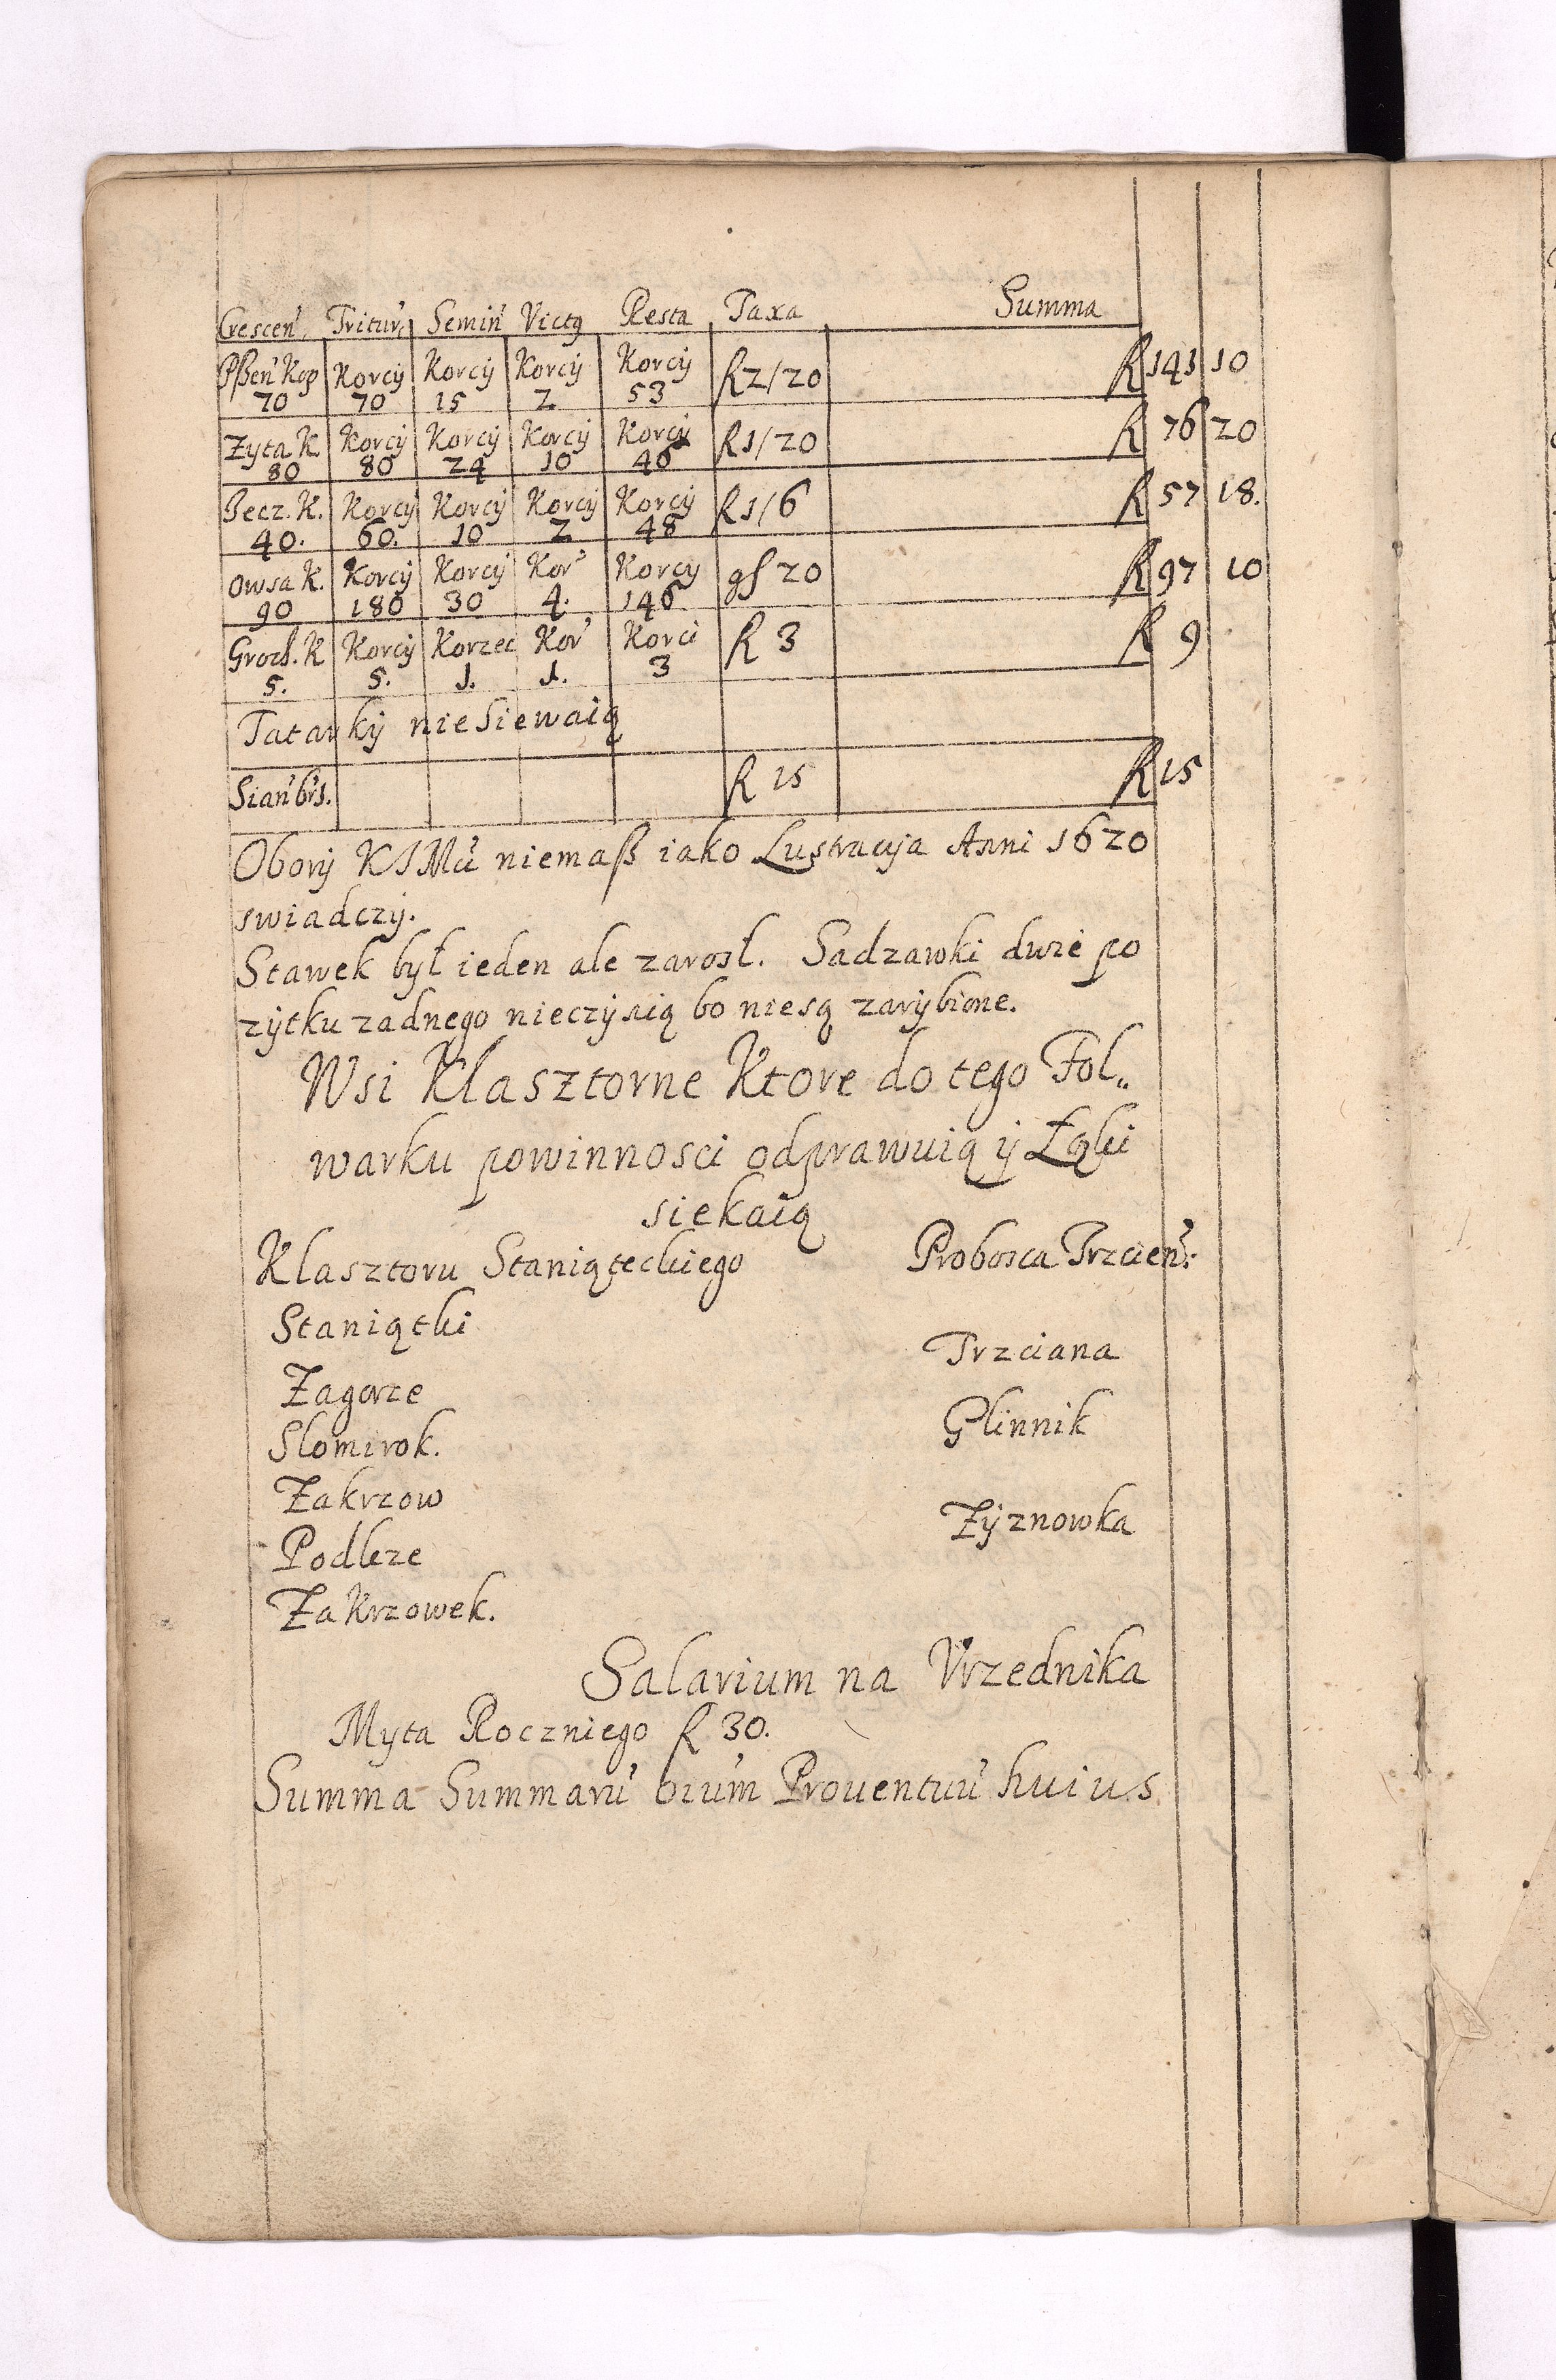 Crescen̄. Tritur̄. Semiñ Victꝰ Resta Taxa Summa
Pßeń Kop 70 Korcÿ 70 Korcÿ 15 Korcÿ 2. Korcÿ 53 fl 2/20 fl 141 10
Zyta K. 80 Korcÿ 80 Korcÿ 24 Korcÿ 10 Korcÿ 46 fl 1/20 fl 76 20
Jecz. K. 40. Korcÿ 60. Korcÿ 10 Korcÿ 2 Korcÿ 48 fl 1/6 fl 57 18.
Owsa K. 90 Korcÿ 180 Korcÿ 30 Kor̄ 4. Korcy 146 gſ 20 fl 97 10
Groch. K 5. Korcÿ 5. Korzec 1. Kor̄ 1. Korci 3 fl 3 fl 9
Tatarkÿ niesiewaią
Siań fl 15 fl 15
Oborÿ KJMći niemaß iako Lustracÿa Anni 1620
swiadczÿ.
Stawek bÿł ieden ale zarosł. Sadzawki dwie po
zÿtku zadnego nieczÿnią bo niesą zarÿbione.
Wsi Klasztorne Ktore do tego Fol„
warku powinnosci odprawuią ÿ Łąki
siekaią
Klasztoru Staniąteckiego Probosca Trzcień:
Staniątki
Trzciana
Zagorze
Glinnik
Slomirok.
Zakrzow
Zÿznowka
Podleze
ZaKrzowek.
Salarium na Vrzednika
Myta Roczniego fl 30.
Summa Summarū oīum Prouentuū huius